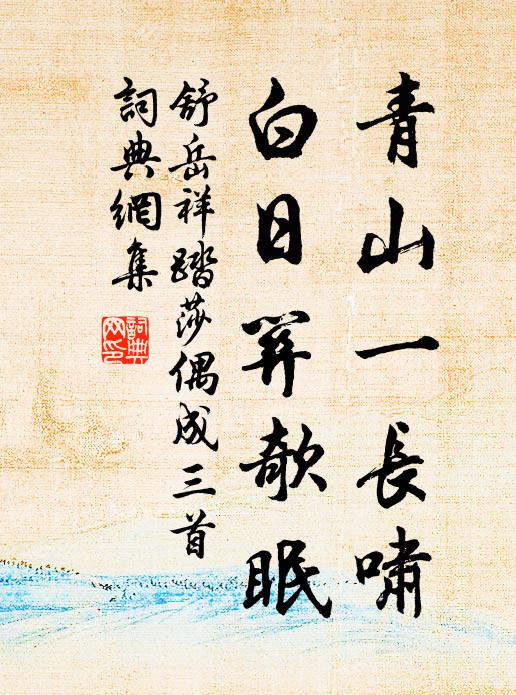 青山一長嘯
白日欹眠
舒岳祥踏莎偶成三首
詞典網集
詞典
网印